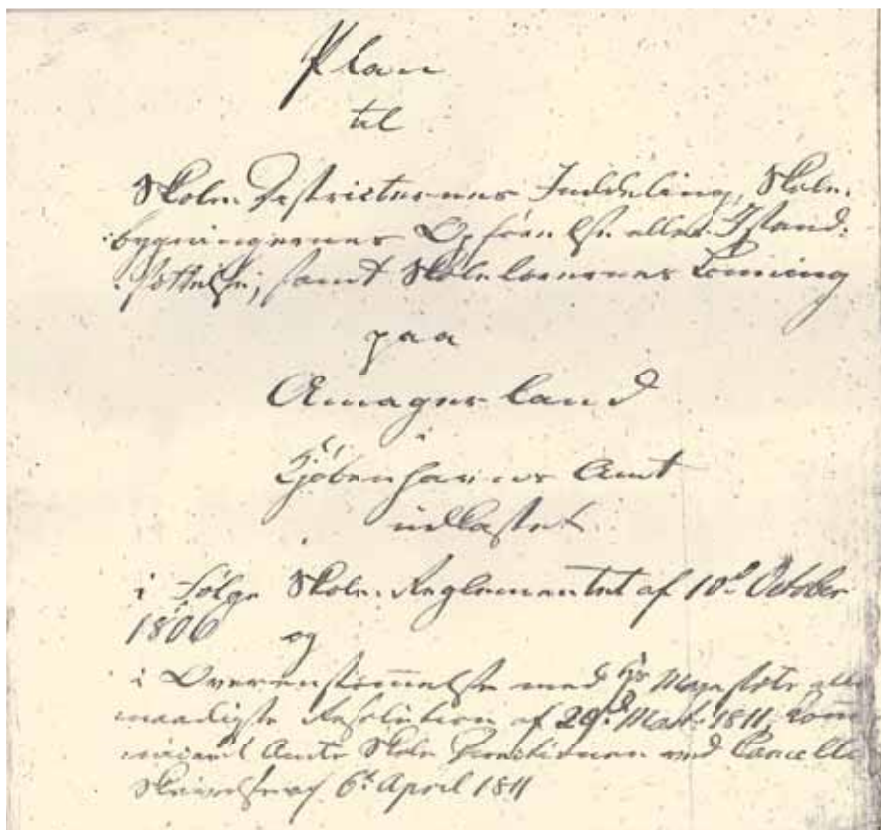 Plan
til
Skole-Districternes Inddeling, Skole-
bygningernes Opførelse eller Istand-
sættelse, samt Skolelærernes Lønning
paa
Amagerland
i
Kjøbenhavns Amt
udkastet
i Følge Skole-Reglementet af 10d October
1806 og
i Overensstem̅else med Hs Majestæts aller
naadigste Resolution af 29d Mart. 1811, com̅
niceret Amts Skole Directionen ved Cancellie
Skrivelse af 6t April 1811